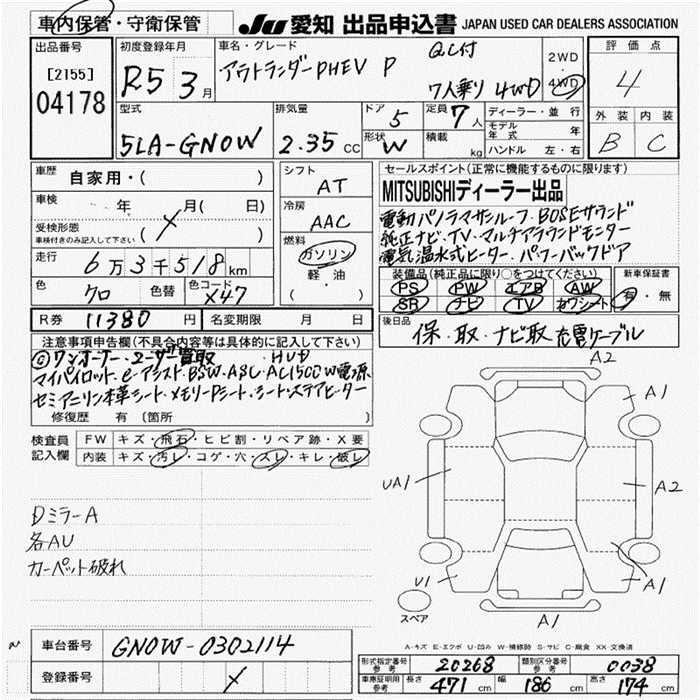 車内保管・守衛保管
JU 愛知 出品申込書 JAPAN USED CAR DEALERS ASSOCIATION
出品番号
[2155]
04178
初度登録年月
R5 3月
車名・グレード
アウトランダーPHEV P
7人乗り 4WD
2WD
4WD
評価点
4
外装 内装
B C
型式
5LA-GN0W
排気量
2.35 CC
ドア 5
形状 W
定員 7人
積載 kg
ディーラー・並行
モデル年式 年
ハンドル 左・右
車歴 自家用・( )
車検 年 月( 日)
受検形態
車検付きのみ記入して下さい
( )
走行
6万3千518km
色 クロ
色替
色コード X47
シフト AT
冷房 AAC
燃料
ガソリン
軽・油
( )
セールスポイント(正常に機能するものに限ります)
MITSUBISHIディーラー出品
電動パノラマサンルーフ・BOSEサウンド
純正ナビ・TV・マルチアラウンドモニター
電気温水式ヒーター・パワーバックドア
装備品(純正品に限り〇をつけてください)
PS PW エアB AW
SR ナビ TV カワシート
新車保証書
有・無
R券 11380円
名変期限 月 日
後日品 保・取・ナビ取 充電ケーブル
注意事項申告欄(不具合内容等は具体的に記入して下さい)
ワンオーナー・ユーザー買取 HUD
マイパイロット・e-アシスト・BSW・ABC・AC1500W電源
セミアニリン本革シート・メモリーPシート・シート・ステアヒーター
修復歴 有 (箇所 )
検査員
記入欄
FW キズ・飛石・ヒビ割・リペア跡・X要
内装 キズ・汚レ・コゲ・穴・スレ・キレ・破レ
DミラーA
各AU
カーペット破れ
A2
A1
UA1
A2
U1
A1
A1
スペア
A-キズ E-エクボ U-凹み W-補修跡 S-サビ C-腐食 XX-交換済
車台番号 GN0W-0302114
登録番号
形式指定番号
参考
20268
類別区分番号
参考
0038
車庫証明用
参考
長さ 471cm 幅 186cm 高さ 174cm